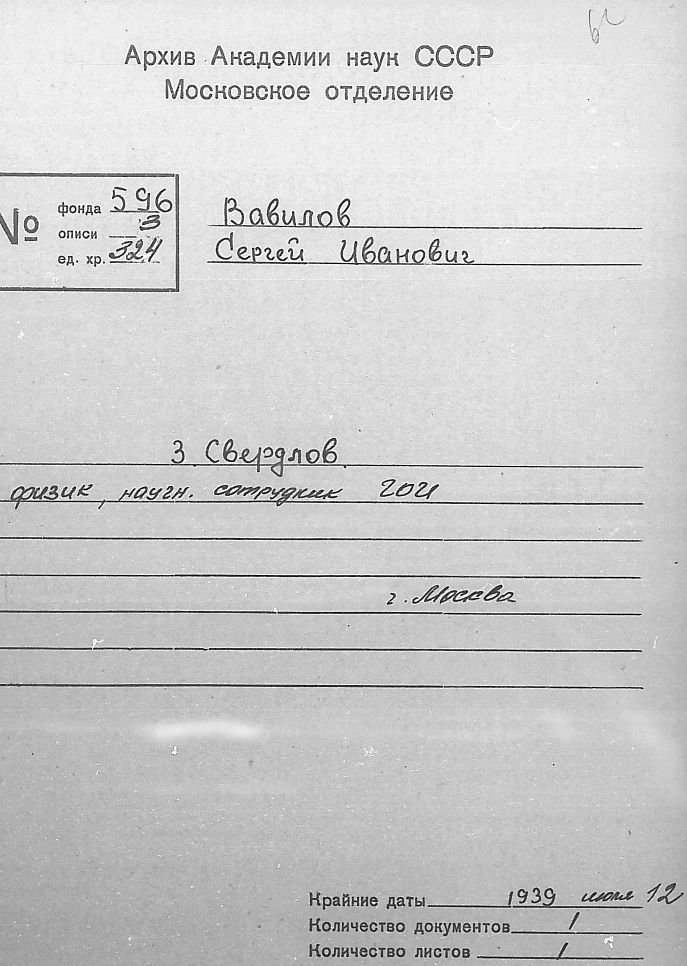 Архив Академии наук СССР
Московское отделение
№
фонда 596
описи 3
ед. хр. 324
Вавилов
Сергей Иванович
З Свердлов
физик, научн. сотрудник ГОИ
г. Москва
Крайние даты 1939 июля 12
Количество документов 1
Количество листов 1